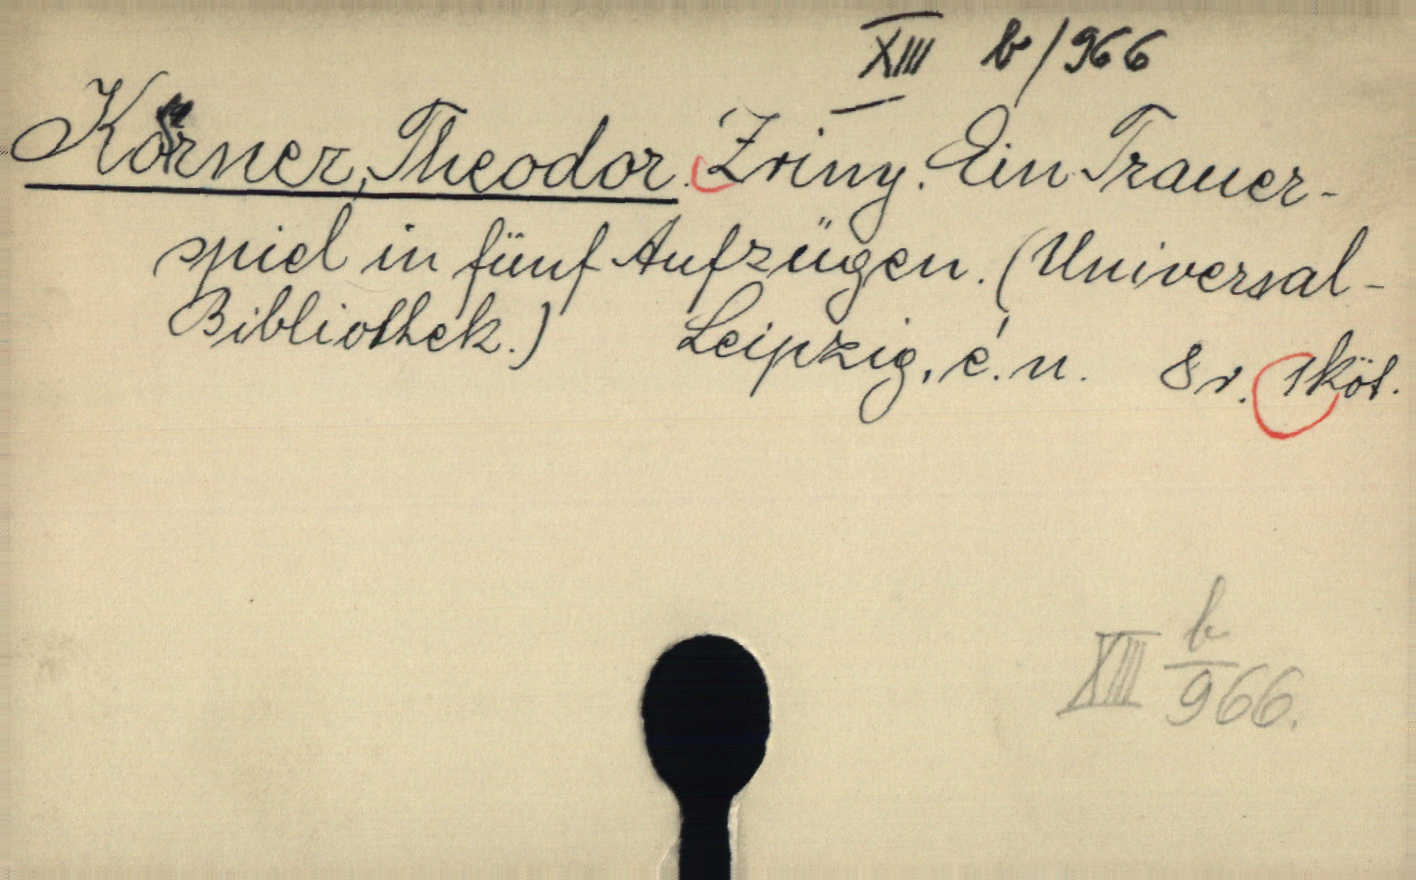 XIII b/966
Körner, Theodor. Zriny. Ein Trauer-
spiel in fünf Aufzügen. (Universal-
Bibliothek.) Leipzig, é. n. 8 r. 1 köt.
XIII b/966.